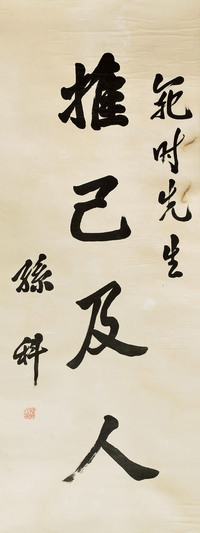 時先生
推己及人
孫科